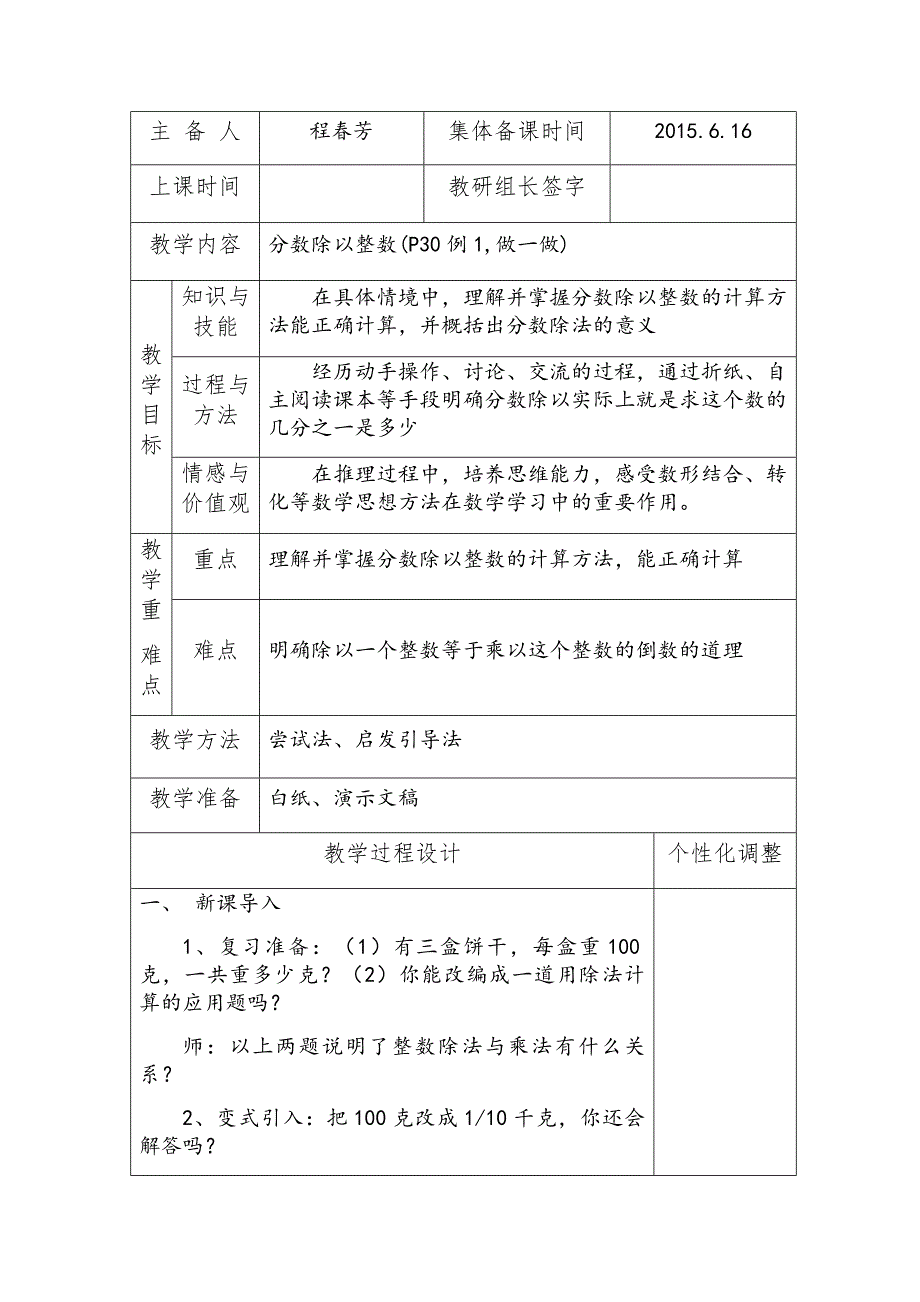 主 备 人 程春芳 集体备课时间 2015.6.16
上课时间 教研组长签字
教学内容 分数除以整数(P30例1,做一做)
教学目标
知识与技能
在具体情境中，理解并掌握分数除以整数的计算方
法能正确计算，并概括出分数除法的意义
过程与方法
经历动手操作、讨论、交流的过程，通过折纸、自
主阅读课本等手段明确分数除以实际上就是求这个数的
几分之一是多少
情感与价值观
在推理过程中，培养思维能力，感受数形结合、转
化等数学思想方法在数学学习中的重要作用。
教学重难点
重点 理解并掌握分数除以整数的计算方法，能正确计算
难点 明确除以一个整数等于乘以这个整数的倒数的道理
教学方法 尝试法、启发引导法
教学准备 白纸、演示文稿
教学过程设计 个性化调整
一、 新课导入
1、复习准备：（1）有三盒饼干，每盒重100
克，一共重多少克？（2）你能改编成一道用除法计
算的应用题吗？
师：以上两题说明了整数除法与乘法有什么关
系？
2、变式引入：把100克改成1/10千克，你还会
解答吗？